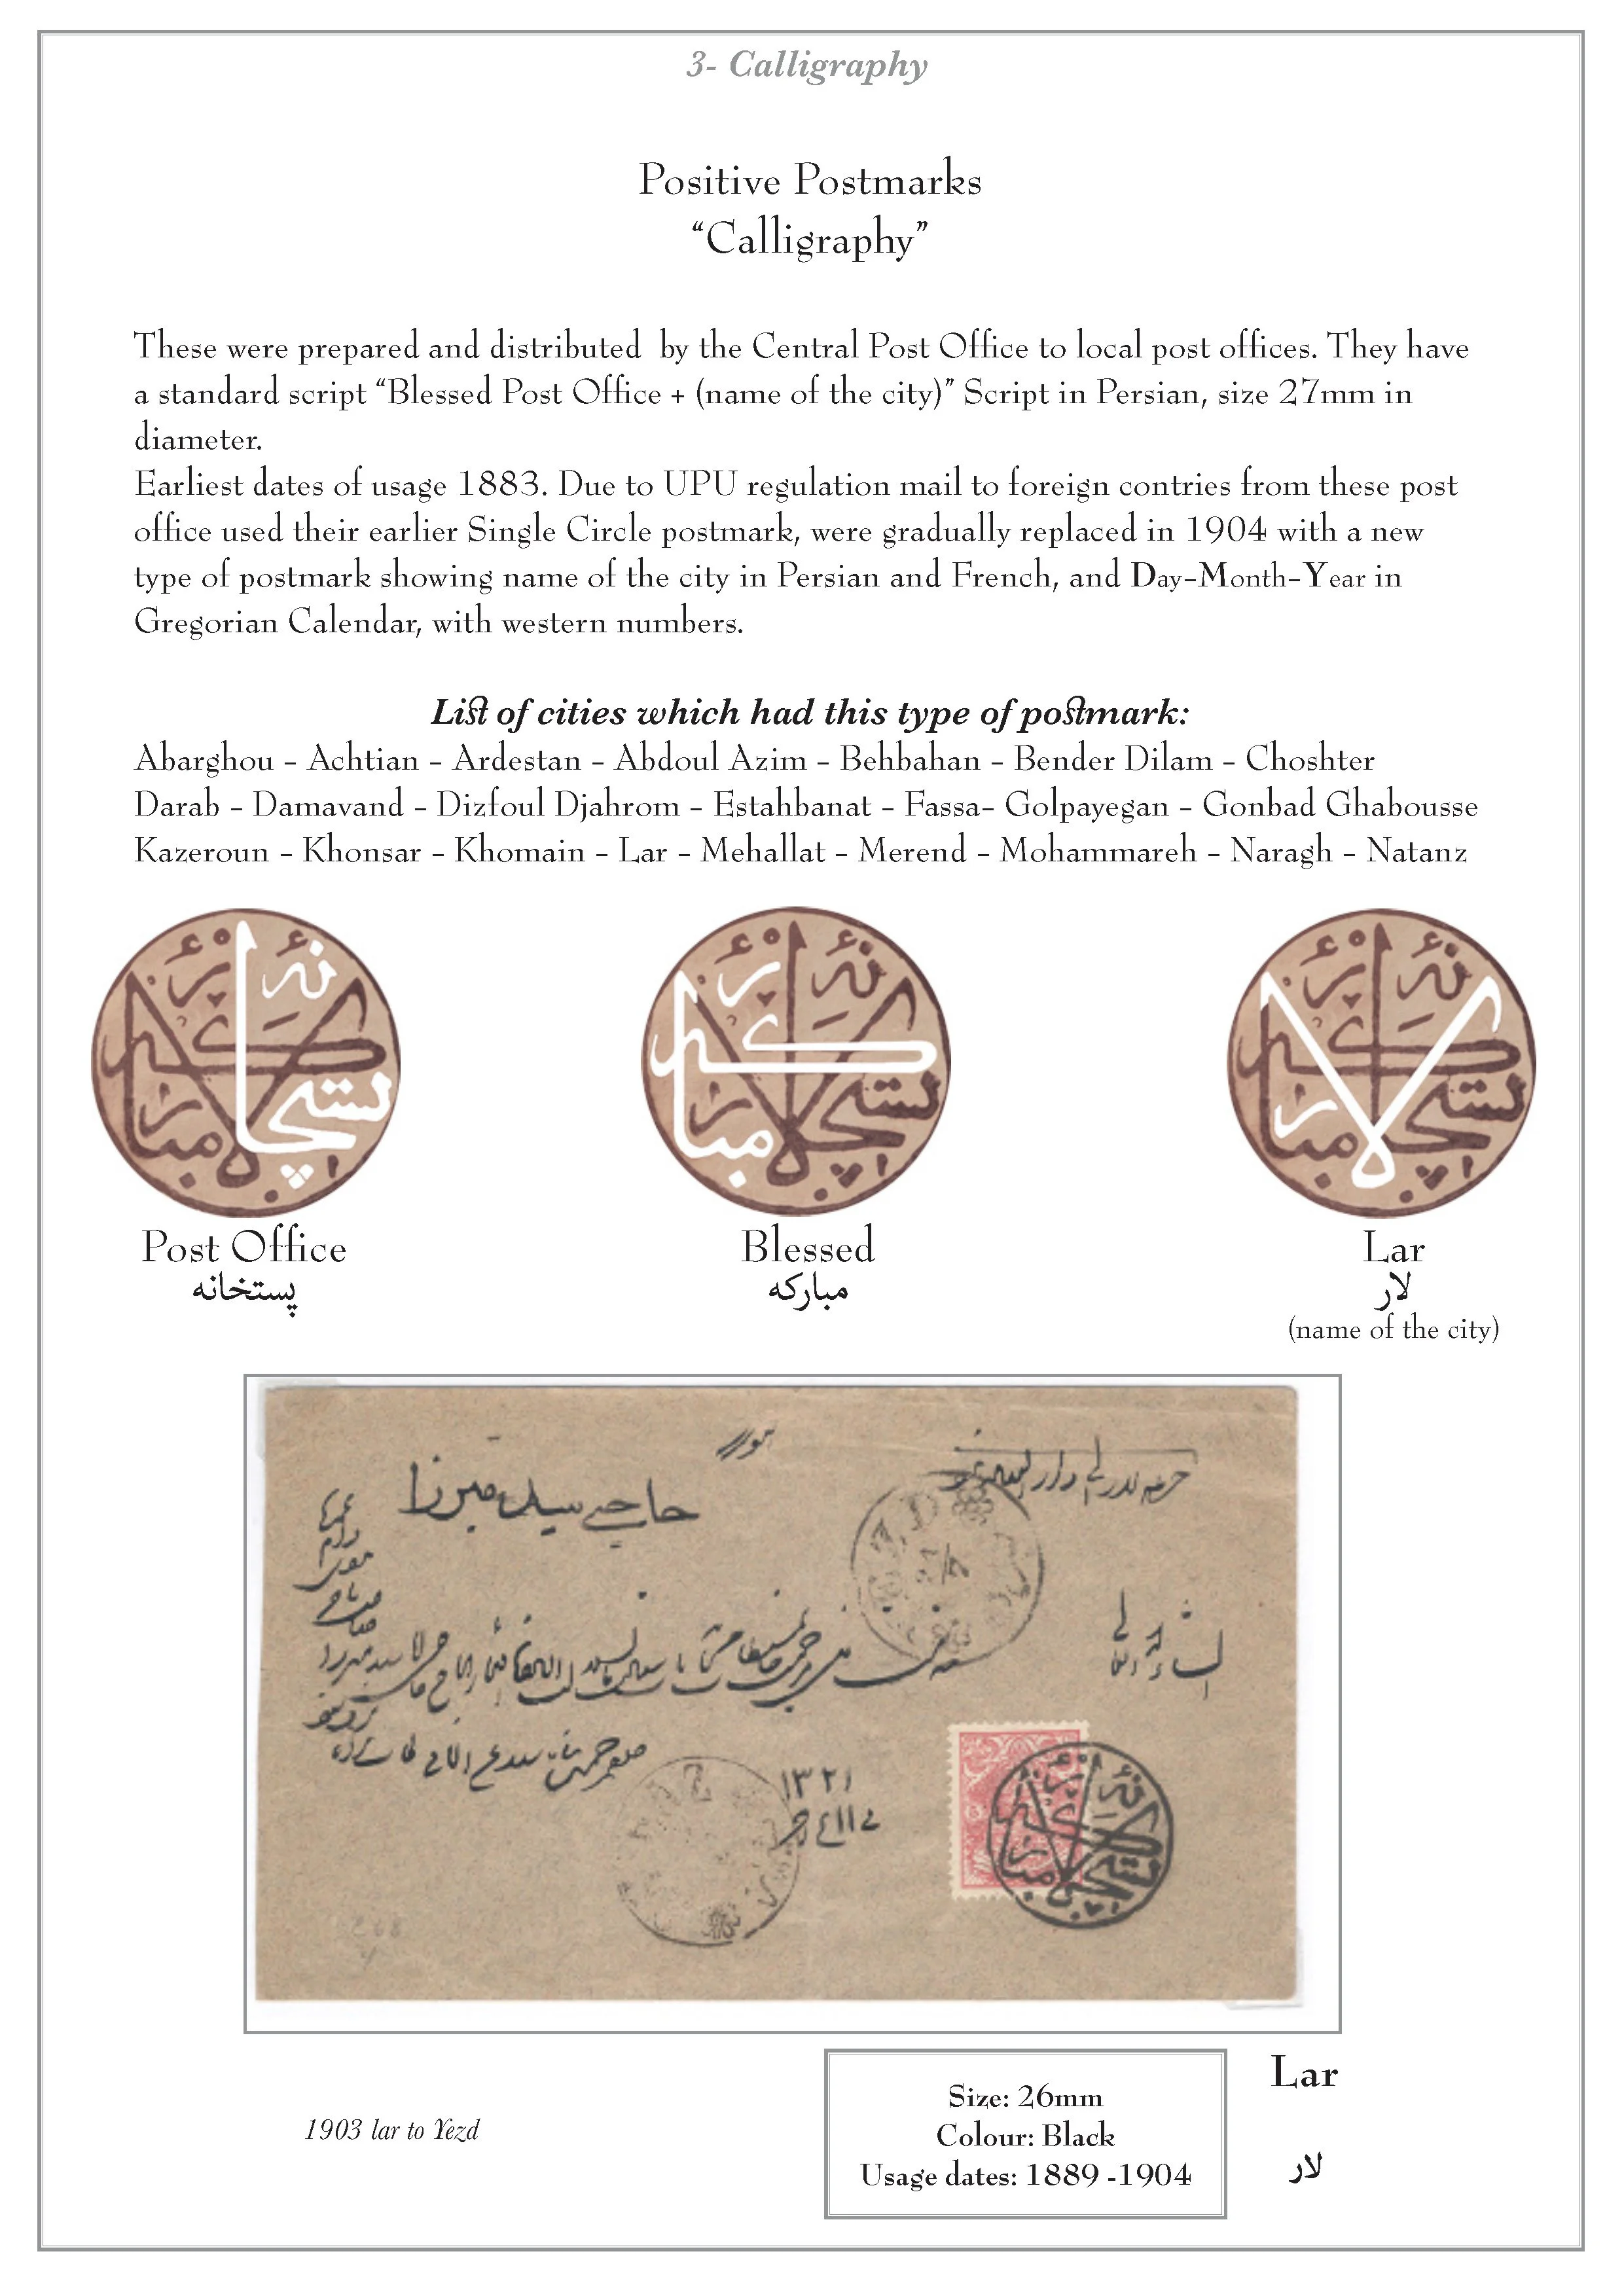 3- Calligraphy
Positive Postmarks
“Calligraphy”
These were prepared and distributed by the Central Post Office to local post offices. They have
a standard script “Blessed Post Office + (name of the city)” Script in Persian, size 27mm in
diameter.
Earliest dates of usage 1883. Due to UPU regulation mail to foreign contries from these post
office used their earlier Single Circle postmark, were gradually replaced in 1904 with a new
type of postmark showing name of the city in Persian and French, and Day-Month-Year in
Gregorian Calendar, with western numbers.
List of cities which had this type of postmark:
Abarghou - Achtian - Ardestan - Abdoul Azim - Behbahan - Bender Dilam - Choshter
Darab - Damavand - Dizfoul Djahrom - Estahbanat - Fassa- Golpayegan - Gonbad Ghabousse
Kazeroun - Khonsar - Khomain - Lar - Mehallat - Merend - Mohammareh - Naragh - Natanz
Post Office
پستخانه
Blessed
مبارکه
Lar
لار
(name of the city)
حاجی سید میرزا
۱۳۲۱
1903 lar to Yezd
Size: 26mm
Colour: Black
Usage dates: 1889 -1904
Lar
لار